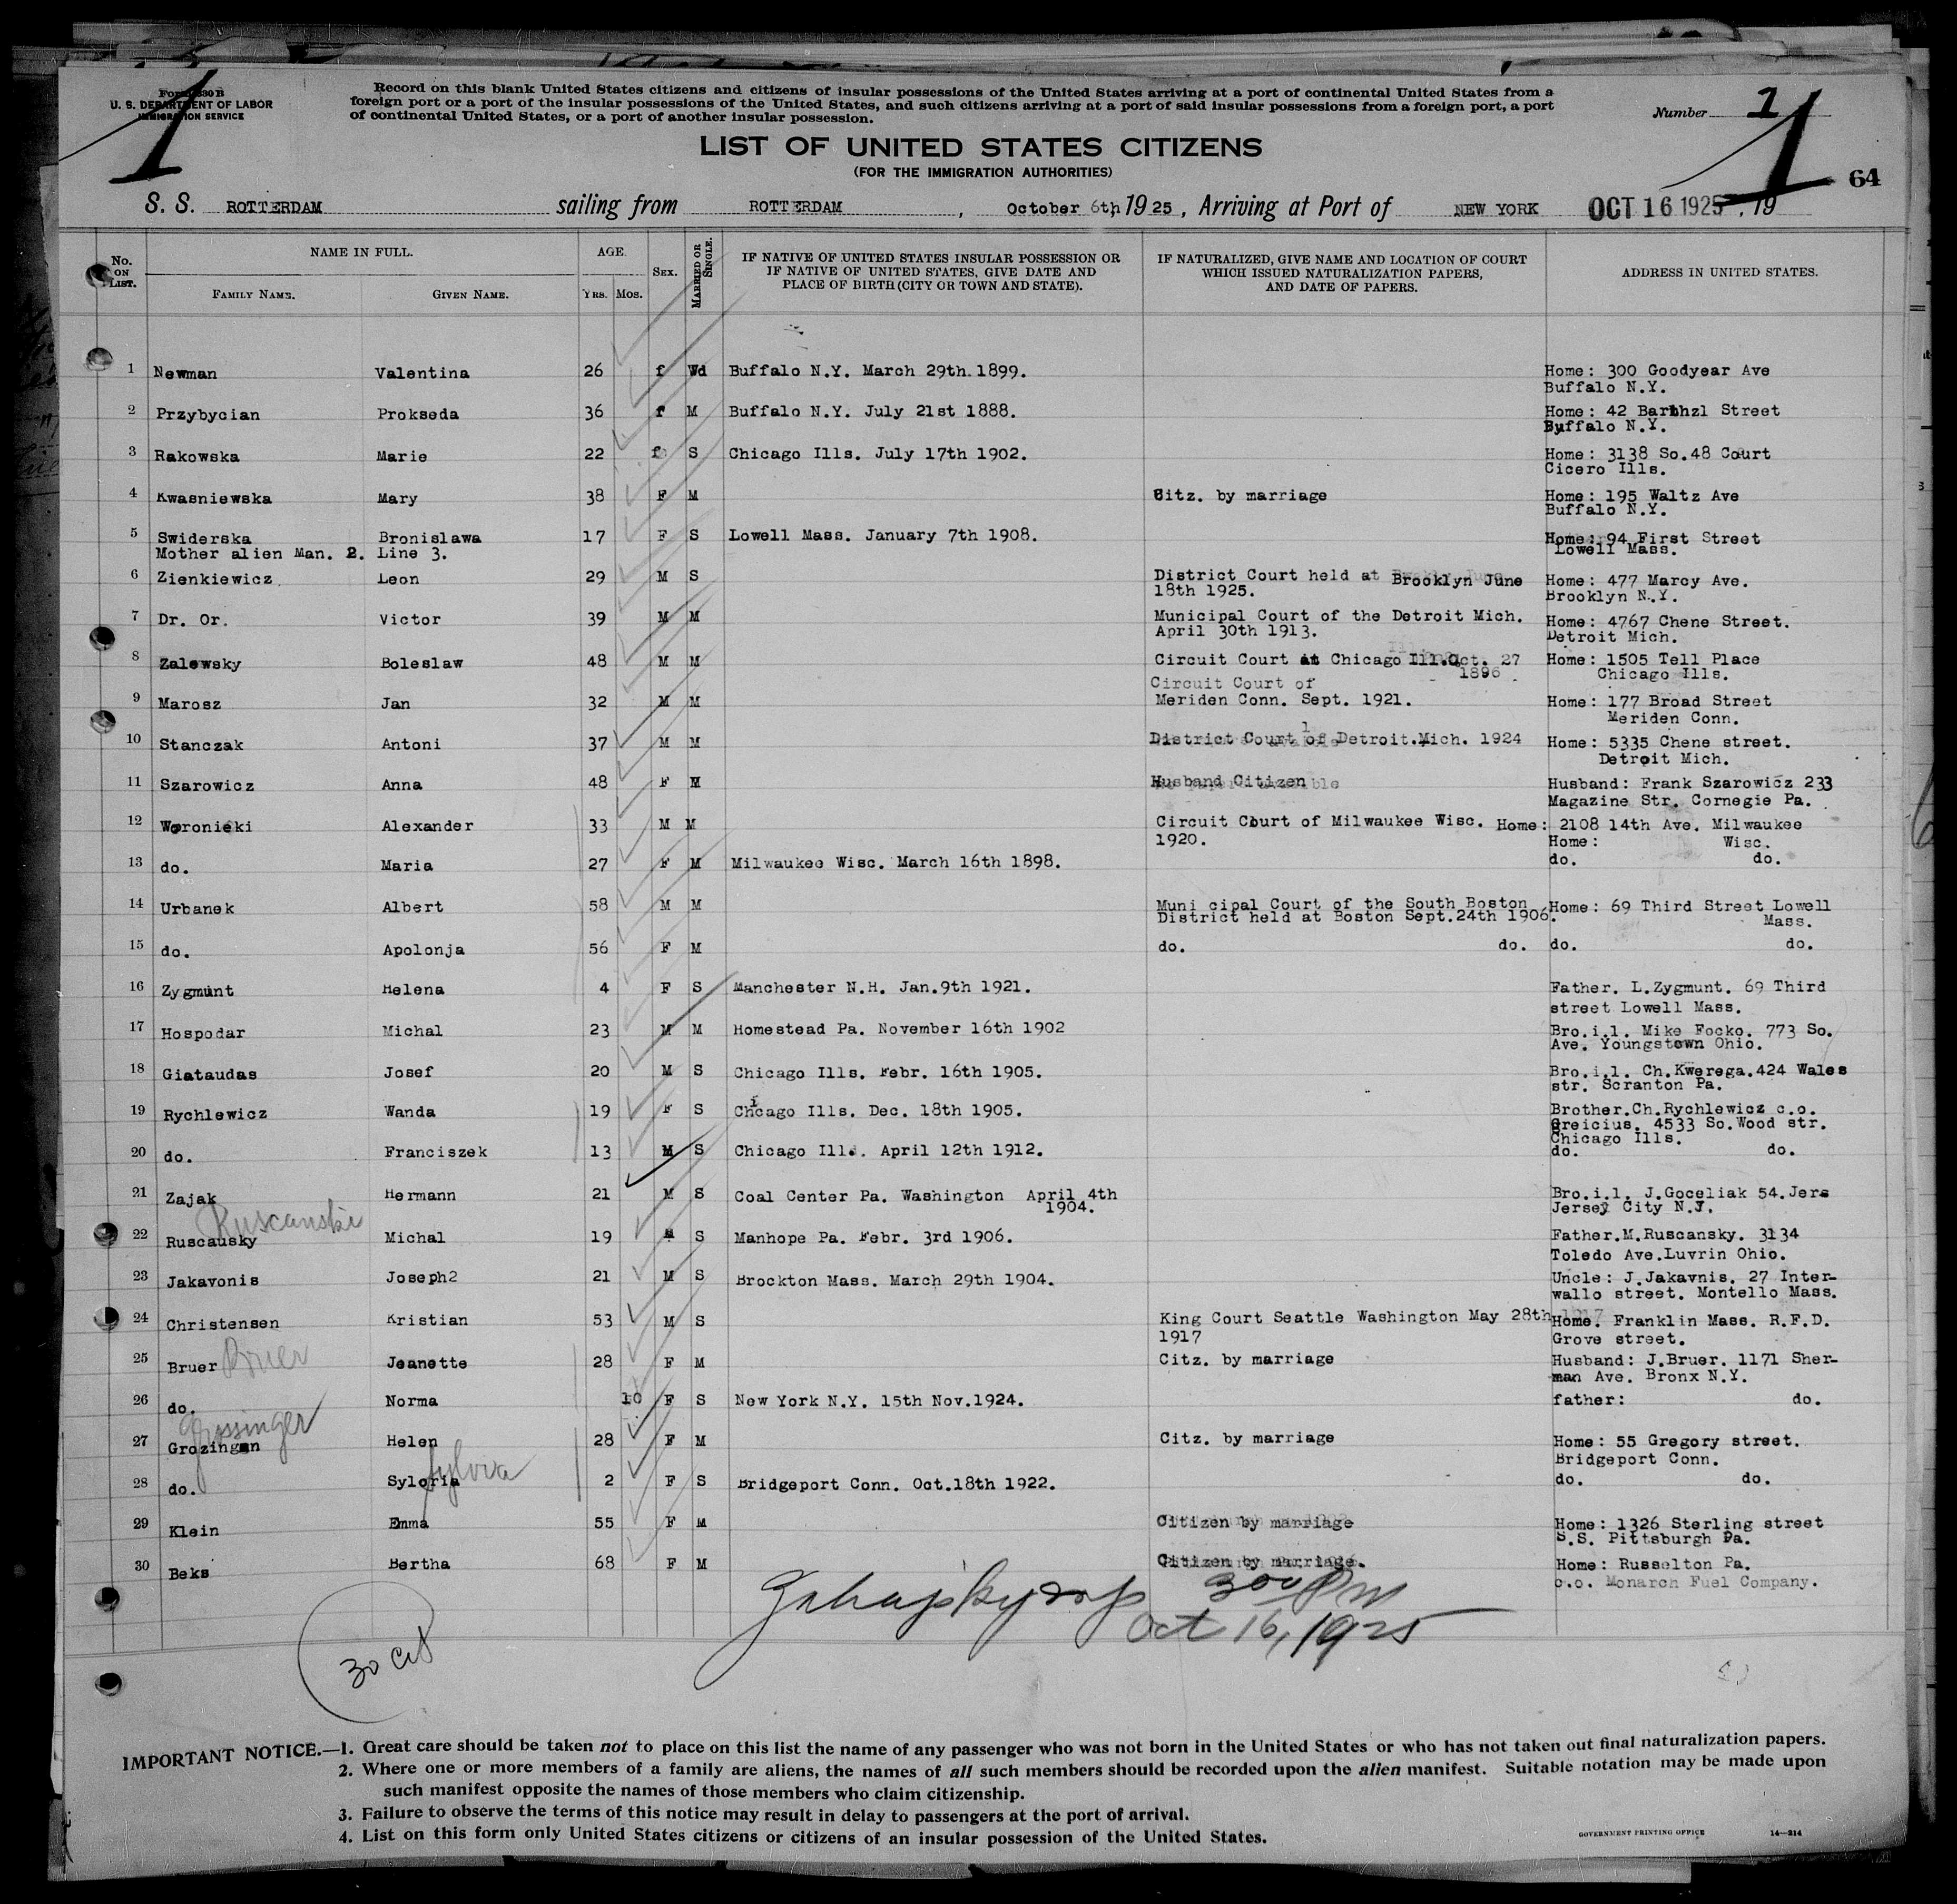 Form 630 B
U. S. DEPARTMENT OF LABOR
IMMIGRATION SERVICE
Record on this blank United States citizens and citizens of insular possessions of the United States arriving at a port of continental United States from a
foreign port or a port of the insular possessions of the United States, and such citizens arriving at a port of said insular possessions from a foreign port, a port
of continental United States, or a port of another insular possession.
Number 1
1 1
LIST OF UNITED STATES CITIZENS
(FOR THE IMMIGRATION AUTHORITIES)
64
S. S. ROTTERDAM sailing from ROTTERDAM , October 6th 1925 , Arriving at Port of NEW YORK OCT 16 1925 , 19
No. ON LIST. NAME IN FULL. FAMILY NAME. GIVEN NAME. AGE. YRS. MOS. SEX. MARRIED OR SINGLE. IF NATIVE OF UNITED STATES INSULAR POSSESSION OR IF NATIVE OF UNITED STATES, GIVE DATE AND PLACE OF BIRTH (CITY OR TOWN AND STATE). IF NATURALIZED, GIVE NAME AND LOCATION OF COURT WHICH ISSUED NATURALIZATION PAPERS, AND DATE OF PAPERS. ADDRESS IN UNITED STATES.
1 Newman Valentina 26 f Wd Buffalo N.Y. March 29th 1899. Home: 300 Goodyear Ave
Buffalo N.Y.
2 Przybycian Prokseda 36 f M Buffalo N.Y. July 21st 1888. Home: 42 Barthzl Street
Buffalo N.Y.
3 Rakowska Marie 22 f S Chicago Ills. July 17th 1902. Home: 3138 So.48 Court
Cicero Ills.
4 Kwasniewska Mary 38 F M Citz. by marriage Home: 195 Waltz Ave
Buffalo N.Y.
5 Swiderska Bronislawa 17 F S Lowell Mass. January 7th 1908. Home: 94 First Street
Mother alien Man. 2. Line 3. Lowell Mass.
6 Zienkiewicz. Leon 29 M S District Court held at Brooklyn June Home: 477 Marcy Ave.
18th 1925. Brooklyn N.Y.
7 Dr. Or. Victor 39 M M Municipal Court of the Detroit Mich. Home: 4767 Chene Street.
April 30th 1913. Detroit Mich.
8 Zalewsky Boleslaw 48 M M Circuit Court at Chicago Ill.Oct. 27 Home: 1505 Tell Place
1896 Chicago Ills.
Circuit Court of
9 Marosz Jan 32 M M Meriden Conn. Sept. 1921. Home: 177 Broad Street
Meriden Conn.
10 Stanczak Antoni 37 M M District Court of Detroit.Mich. 1924 Home: 5335 Chene street.
Detroit Mich.
11 Szarowicz Anna 48 F M Husband Citizen Husband: Frank Szarowicz 233
Magazine Str. Cornegie Pa.
12 Woronieki Alexander 33 M M Circuit Court of Milwaukee Wisc. Home: 2108 14th Ave. Milwaukee
1920. Home: Wisc.
13 do. Maria 27 F M Milwaukee Wisc. March 16th 1898. do. do.
14 Urbanek Albert 58 M M Muni cipal Court of the South Boston Home: 69 Third Street Lowell
District held at Boston Sept.24th 1906. Mass.
15 do. Apolonja 56 F M do. do. do. do.
16 Zygmunt Helena 4 F S Manchester N.H. Jan.9th 1921. Father. L.Zygmunt. 69 Third
street Lowell Mass.
17 Hospodar Michal 23 M M Homestead Pa. November 16th 1902 Bro.i.l. Mike Focko. 773 So.
Ave. Youngstown Ohio.
18 Giataudas Josef 20 M S Chicago Ills. Febr. 16th 1905. Bro.i.l. Ch.Kwerega.424 Wales
str. Scranton Pa.
19 Rychlewicz Wanda 19 F S Chicago Ills. Dec. 18th 1905. Brother.Ch.Rychlewicz c.o.
Greicius. 4533 So.Wood str.
Chicago Ills.
20 do. Franciszek 13 M S Chicago Ills. April 12th 1912. do. do.
21 Zajak Hermann 21 M S Coal Center Pa. Washington April 4th Bro.i.l. J.Goceliak 54.Jers
1904. Jersey City N.J.
Ruscanski
22 Ruscausky Michal 19 M S Manhope Pa. Febr. 3rd 1906. Father.M.Ruscansky. 3134
Toledo Ave.Luvrin Ohio.
23 Jakavonis Joseph2 21 M S Brockton Mass. March 29th 1904. Uncle: J.Jakavnis. 27 Inter-
wallo street. Montello Mass.
24 Christensen Kristian 53 M S King Court Seattle Washington May 28th Home. Franklin Mass. R.F.D.
1917 Grove street.
25 Bruer Bruer Jeanette 28 F M Citz. by marriage Husband: J.Bruer. 1171 Sher-
man Ave. Bronx N.Y.
26 do. Norma 10 F S New York N.Y. 15th Nov.1924. father: do.
Grossinger
27 Grozingan Helen 28 F M Citz. by marriage Home: 55 Gregory street.
Bridgeport Conn.
28 do. Syloria Sylvia 2 F S Bridgeport Conn. Oct.18th 1922. do. do.
29 Klein Emma 55 F M Citizen by marriage Home: 1326 Sterling street
S.S. Pittsburgh Pa.
30 Beks Bertha 68 F M Citizen by marriage. Home: Russelton Pa.
c.o. Monarch Fuel Company.
300 PM
Oct 16, 1925
30 cit
IMPORTANT NOTICE.—1. Great care should be taken not to place on this list the name of any passenger who was not born in the United States or who has not taken out final naturalization papers.
2. Where one or more members of a family are aliens, the names of all such members should be recorded upon the alien manifest. Suitable notation may be made upon
such manifest opposite the names of those members who claim citizenship.
3. Failure to observe the terms of this notice may result in delay to passengers at the port of arrival.
4. List on this form only United States citizens or citizens of an insular possession of the United States.
GOVERNMENT PRINTING OFFICE 14—214